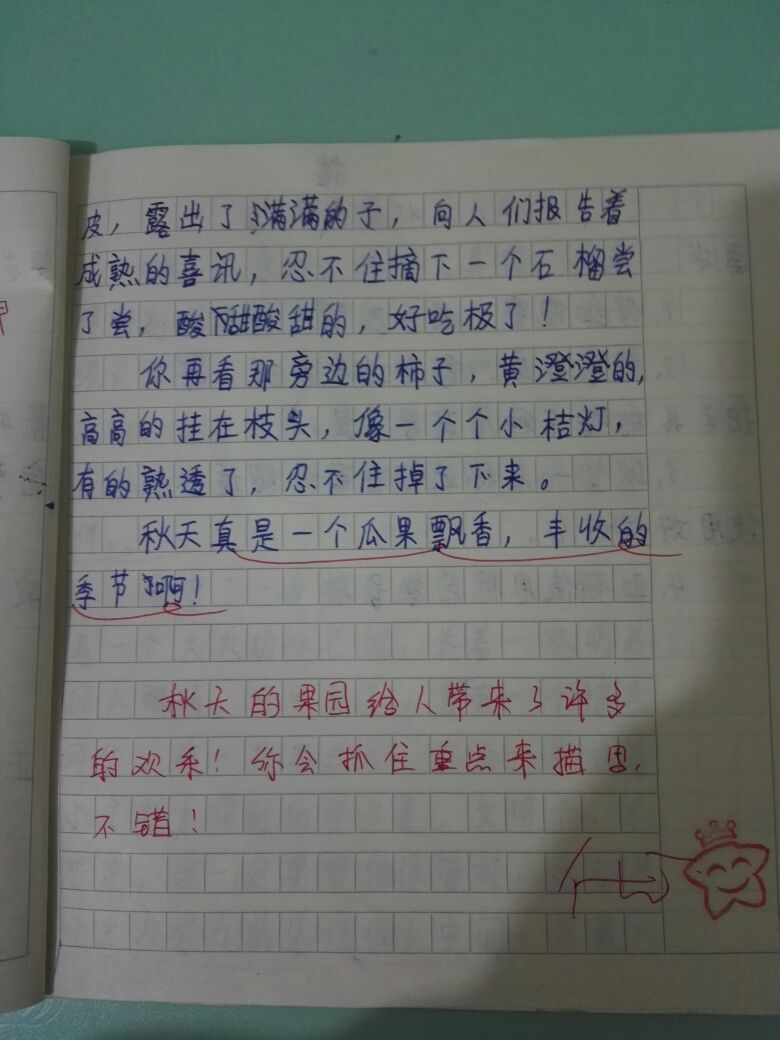 皮，露出了满满的子，向人们报告着
成熟的喜讯，忍不住摘下一个石榴尝
了尝，酸甜酸甜的，好吃极了！
你再看那旁边的柿子，黄澄澄的，
高高的挂在枝头，像一个个小桔灯，
有的熟透了，忍不住掉了下来。
秋天真是一个瓜果飘香，丰收的
季节啊！
秋天的果园给人带来了许多
的欢乐！你会抓住重点来描
不错！